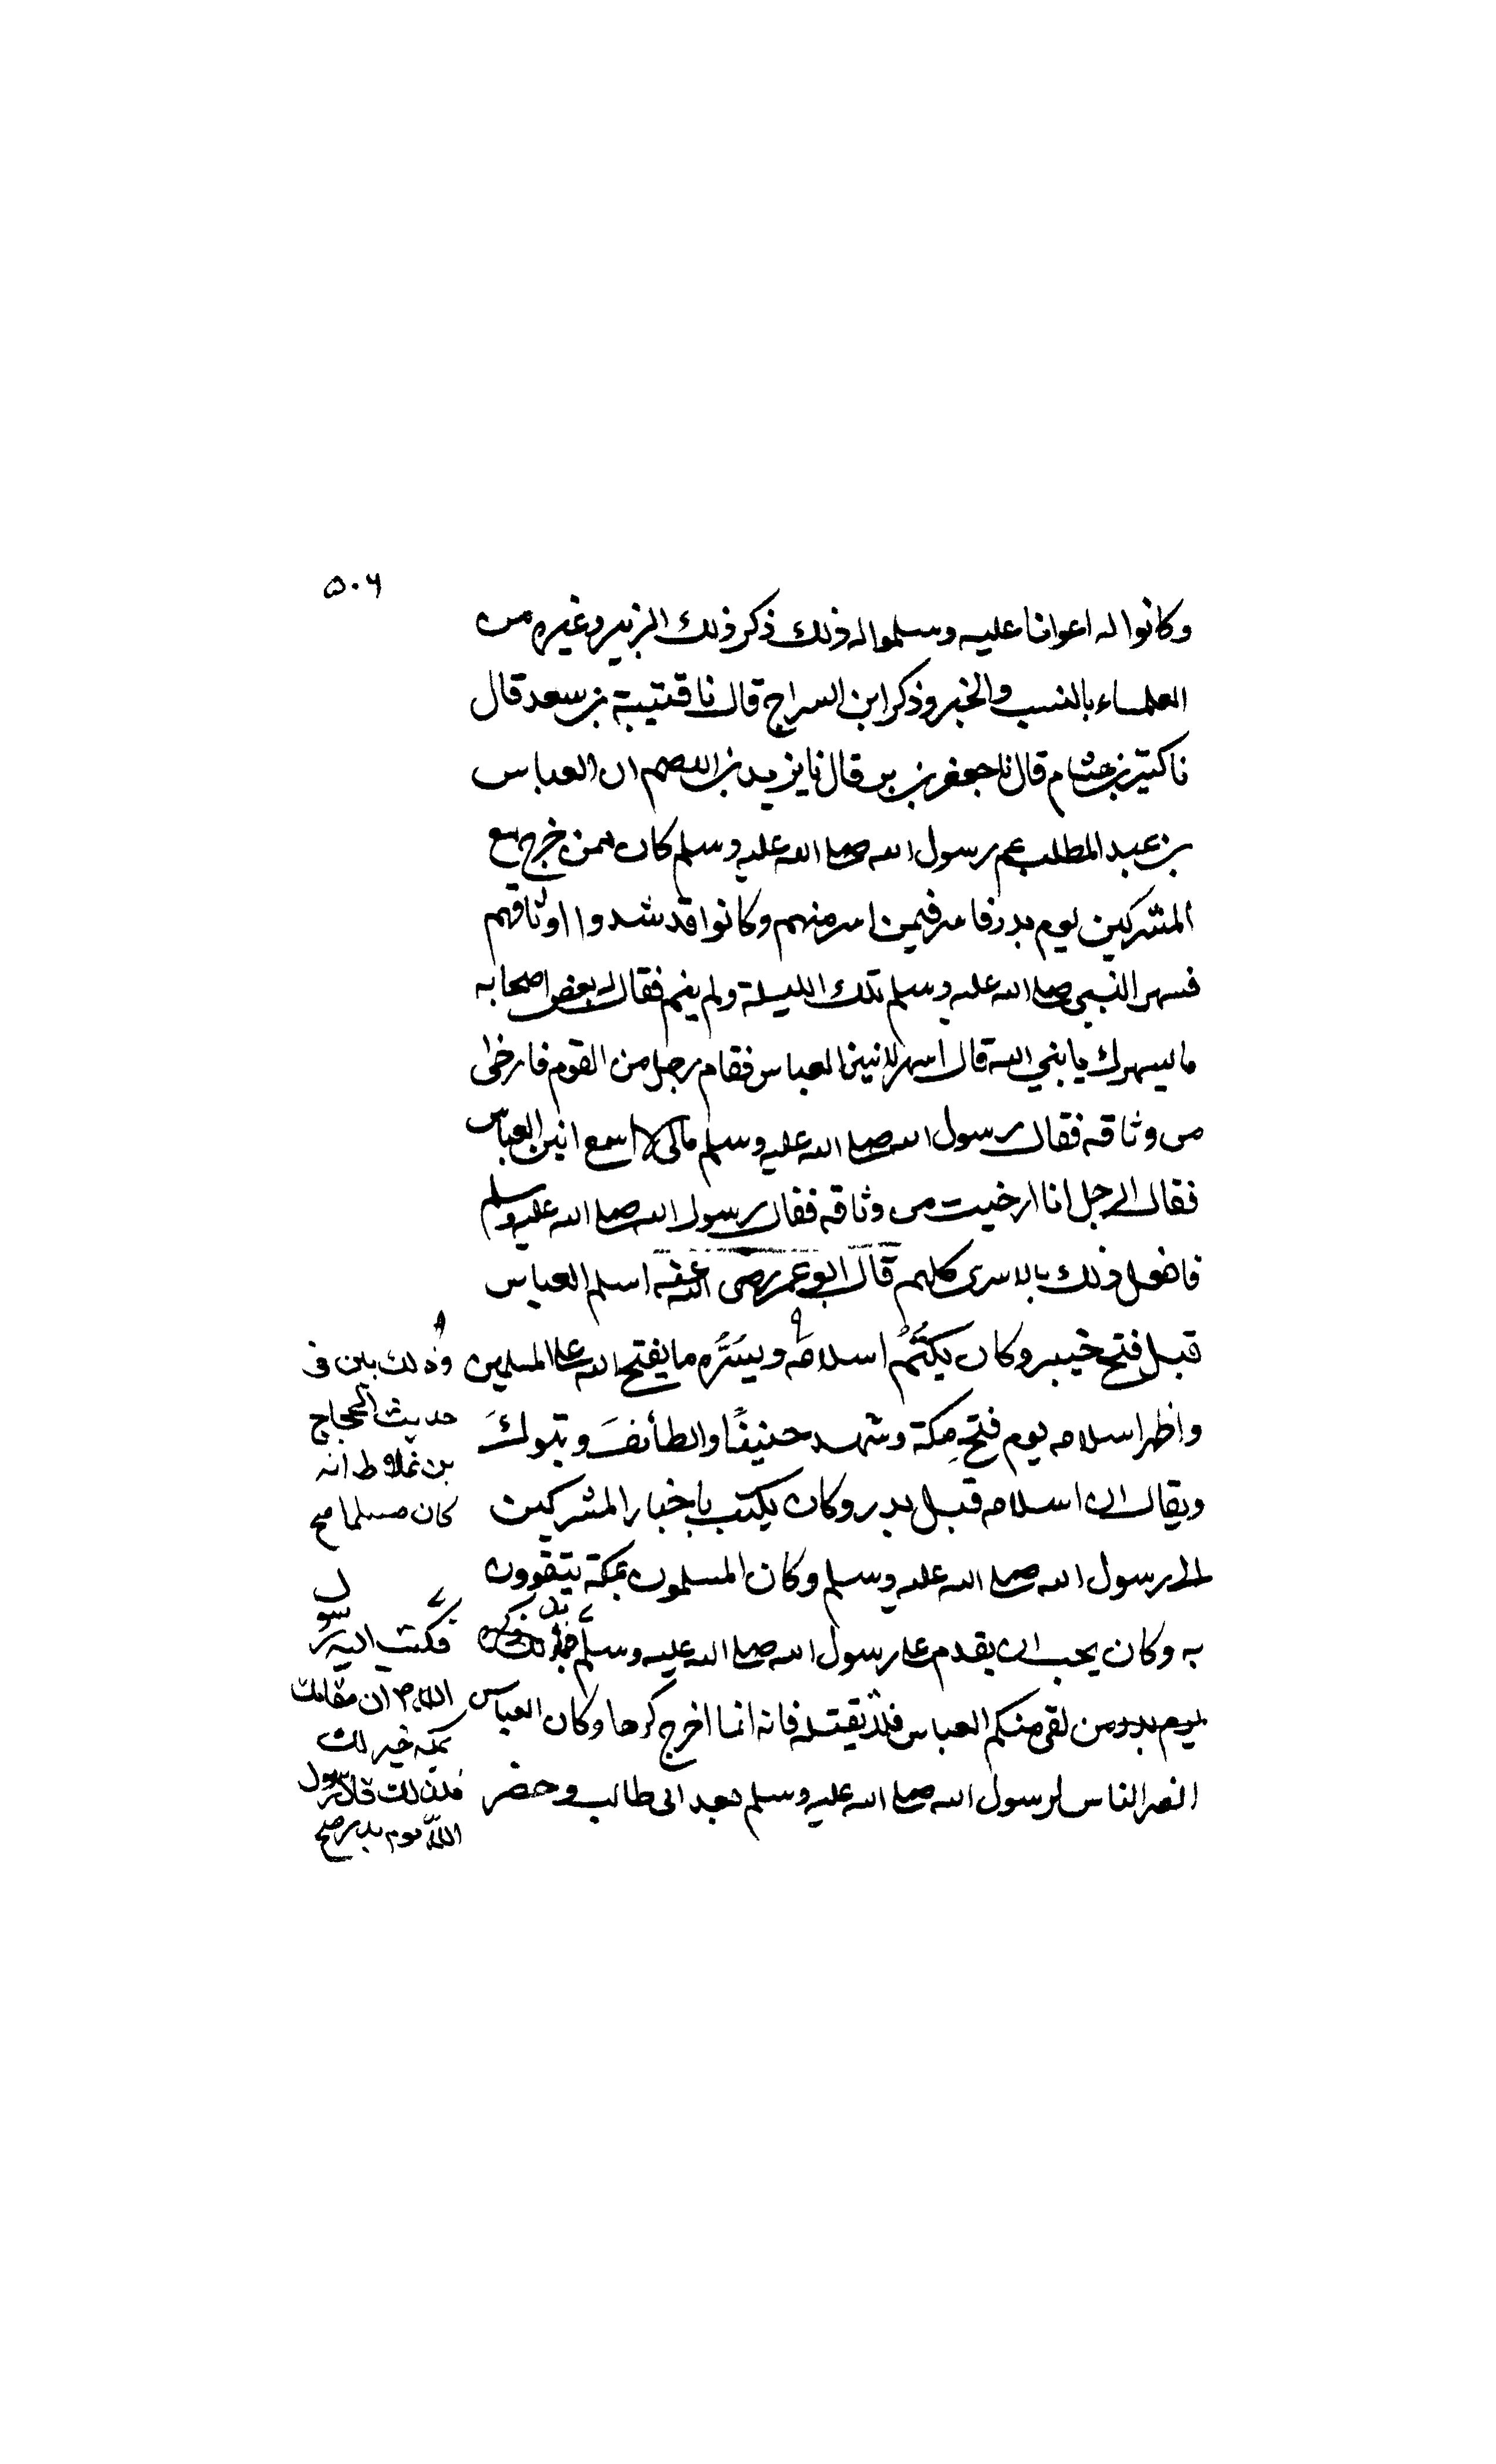 ٥٠٦
وكانوا له اعوانا عليه وسلموا له ذلك ذكر ذلك الزبير وغيره من
العلماء بالنسب والخبر وذكر ابن السراج قال نا قتيبة بن سعد قال
نا كثير بن هشام قال نا جعفر بن برقان قال نا يزيد بن الاصم ان العباس
بن عبد المطلب عم رسول الله صلى الله عليه وسلم كان ممن خرج مع
المشركين يوم بدر فاسر فيمن اسر منهم وكانوا قد شدوا اوثاقهم
فسهر النبي صلى الله عليه وسلم تلك الليلة ولم ينم فقال له بعض اصحابه
ما يسهرك يا نبي الله قال اسهر لانين العباس فقام رجل من القوم فارخى
من وثاقه فقال رسول الله صلى الله عليه وسلم مالي لا اسمع انين العباس
فقال الرجل انا ارخيت من وثاقه فقال رسول الله صلى الله عليه وسلم
فافعل ذلك بالاسرى كلهم قال ابو عمر رضى الله عنه اسلم العباس
قبل فتح خيبر وكان يكتُمُ اسلامَه ويسُرُّه ما يفتح الله على المسلمين
واظهر اسلامه يوم فتحِ مكة وشهد حنينًا والطائفَ وتبوكَ
ويقال ان اسلامه قبل بدر وكان يكتب باخبار المشركين
الى رسول الله صلى الله عليه وسلم وكان المسلمون بمكة يتقوون
به وكان يحب ان يقدم على رسول الله صلى الله عليه وسلم
يوم بدر من لقى منكم العباس فلا يقتله فانه انما اخرج كرها وكان العباس
انصر الناس لرسول الله صلى الله عليه وسلم بعد ابى طالب وحضر
وذلك بين فى
حديث الحجاج
بن علاط انه
كان مسلما صح
فكتب اليه رسول
الله ان مقامك
بمكة خير لك
فلذلك قال رسول
الله يوم بدر صح